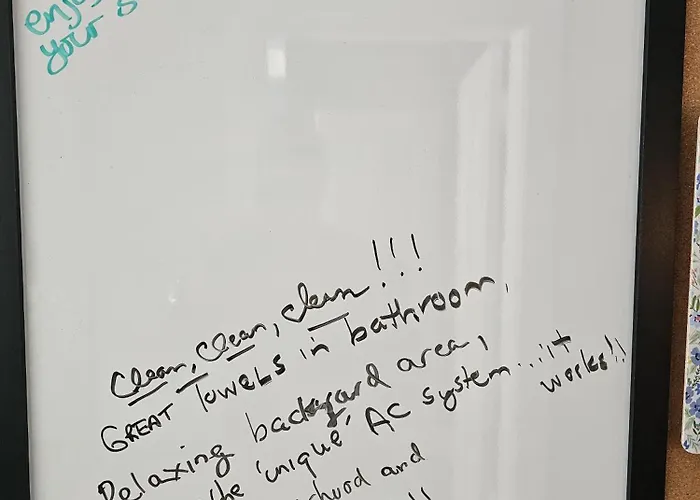 your
Clean, Clean, Clean!!!
GREAT Towels in bathroom,
Relaxing backyard area,
the 'unique' AC system...it
works!!
and
!!